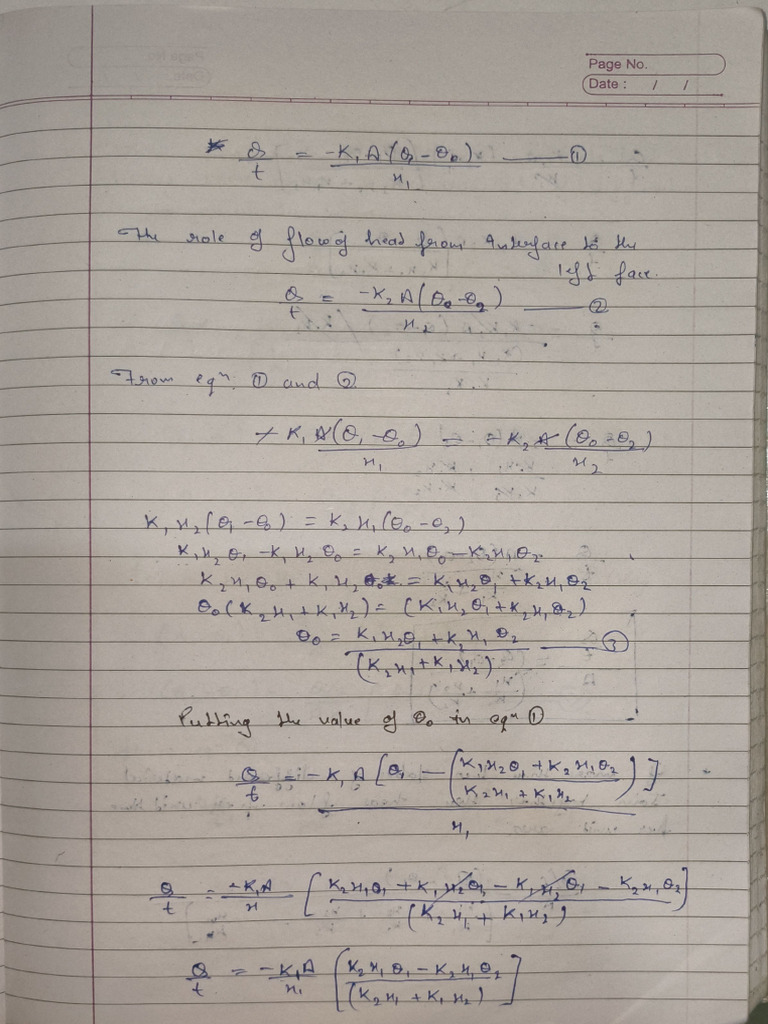 Page No.
Date : / /
* Q/t = -K₁A(θ₁-θ₀)/x₁ —— ①
The role of flow of head from interface to the
left face.
Q/t = -K₂A(θ₀-θ₂)/x₂ —— ②
From eqⁿ. ① and ②
-K₁A(θ₁-θ₀)/x₁ = -K₂A(θ₀-θ₂)/x₂
K₁x₂(θ₁-θ₀) = K₂x₁(θ₀-θ₂)
K₁x₂θ₁-K₁x₂θ₀ = K₂x₁θ₀-K₂x₁θ₂
K₂x₁θ₀ + K₁x₂ = K₁x₂θ₁ + K₂x₁θ₂
θ₀(K₂x₁+K₁x₂) = (K₁x₂θ₁+K₂x₁θ₂)
θ₀ = K₁x₂θ₁+K₂x₁θ₂/(K₂x₁+K₁x₂) —— ③
Putting the value of θ₀ in eqⁿ ①
Q/t = -K₁A[θ₁-(K₁x₂θ₁+K₂x₁θ₂/K₂x₁+K₁x₂)]/x₁
Q/t = -K₁A/x [K₂x₁θ₁+K₁x₂θ₁-K₁x₂θ₁-K₂x₁θ₂/(K₂x₁+K₁x₂)]
Q/t = -K₁A/x₁ [K₂x₁θ₁-K₂x₁θ₂/(K₂x₁+K₁x₂)]